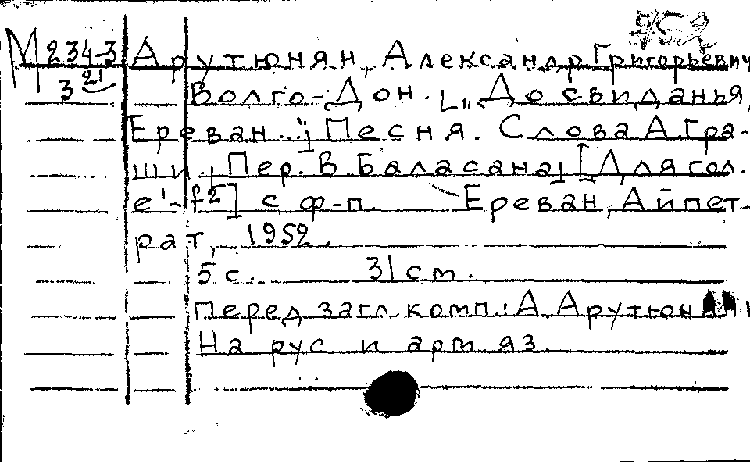 М 234-3 Арутюнян, Александр Григорьевич
3 21 Волго-Дон. [„До свиданья,
Ереван..."] Песня. Слова А. Гра-
ши. Пер. В. Баласана. [Для гол.
e'-f2] с ф-п. Ереван, Айпет-
рат, 1952.
5 с. 31 см.
Перед загл. комп.: А. Арутюнян
На рус. и арм. яз.